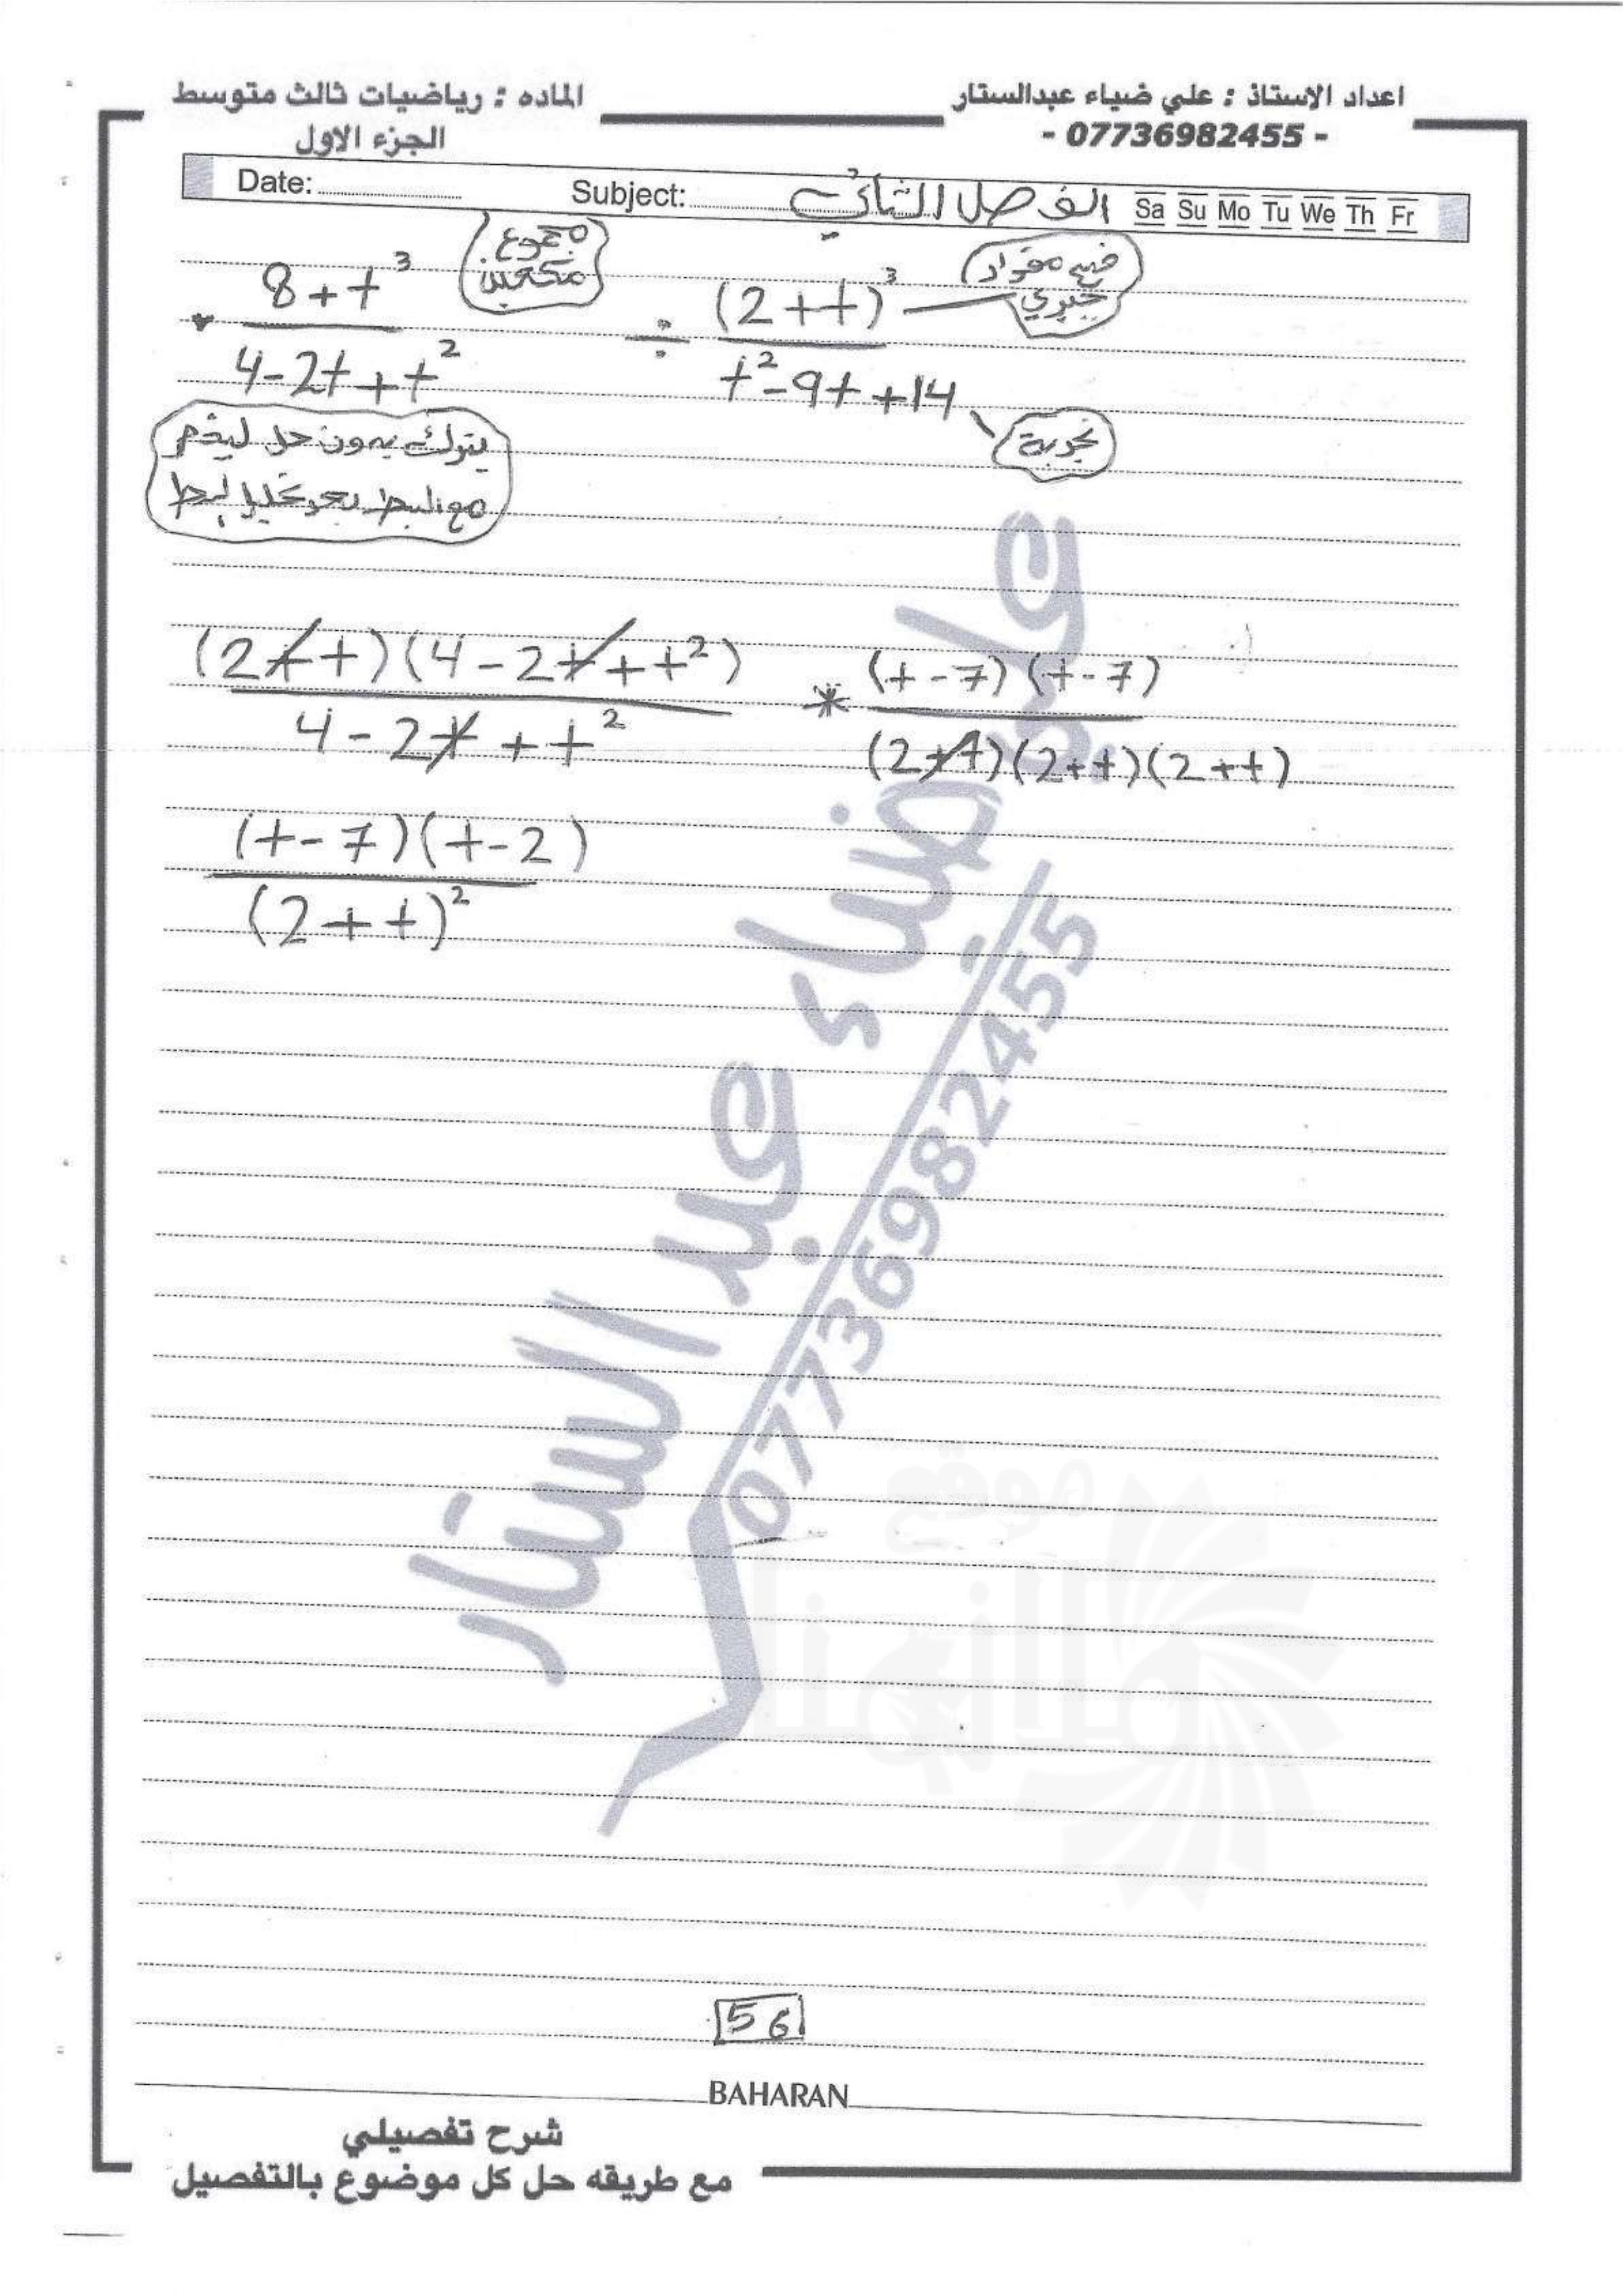 اعداد الاستاذ : علي ضياء عبدالستار
- 07736982455 -
الماده : رياضيات ثالث متوسط
الجزء الاول
Date: Subject: الفصل الثاني Sa Su Mo Tu We Th Fr
مجموع مكعبين
فتح مقواد جبري
(8+t³)/(4-2t+t²) ÷ (2+t)³/(t²-9t+14)
تجربة
يترك بدون حل ليختصر
مع البسط بعد تحليل البسط
(2+t)(4-2t+t²)/(4-2t+t²) * (t-7)(t-7)/(2+t)(2+t)(2+t)
(t-7)(t-2)/(2+t)²
علي ضياء عبد الستار
07736982455
56
BAHARAN
شرح تفصيلي
مع طريقه حل كل موضوع بالتفصيل